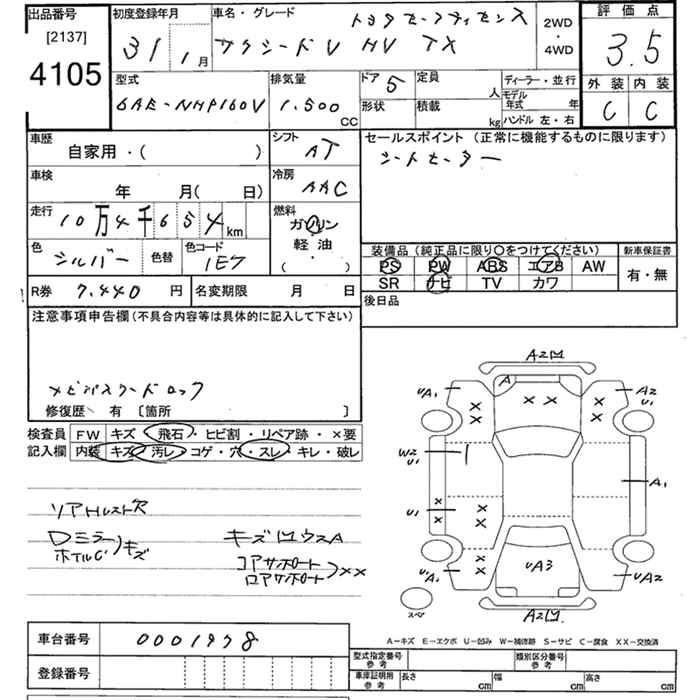 出品番号
[2137]
4105
初度登録年月
31 1月
車名・グレード
トヨタセーフティセンス
サクシードU HV TX
2WD
・
4WD
評価点
3.5
外装 内装
C C
型式
6AE-NHP160V
排気量
1.500
CC
ドア 5
形状
定員
人
積載
kg
ディーラー・並行
モデル
年式 年
ハンドル 左・右
車歴
自家用・( )
シフト
AT
車検
年 月( 日)
冷房
AAC
走行
10万4千654km
燃料
ガソリン
軽油
( ・ )
色
シルバー
色替
色コード
1E7
R券 7.440 円
名変期限 月 日
セールスポイント(正常に機能するものに限ります)
シートヒーター
装備品(純正品に限り○をつけてください)
PS PW ABS エアB AW
SR ナビ TV カワ
新車保証書
有・無
後日品
注意事項申告欄(不具合内容等は具体的に記入して下さい)
ナビパスワードロック
修復歴 有 〔箇所 〕
検査員
記入欄
FW キズ・飛石・ヒビ割・リペア跡・×要
内装 キズ・汚レ・コゲ・穴・スレ・キレ・破レ
リアHレスト欠
Dミラー
ホイルC
キズ
キズ凹ウスA
コアサポート
ロアサポート
××
A2凹
A
UA1
A2
U1
× × × × × ×
W2
U1
A1
U1
× × × ×
UA3
× ×
UA1
UA2
スペア
A2凹
A−キズ E−エクボ U−凹み W−補修跡 S−サビ C−腐食 XX−交換済
車台番号 0001978
登録番号
型式指定番号
参考
類別区分番号
参考
車庫証明用
参考
長さ cm 幅 cm 高さ cm